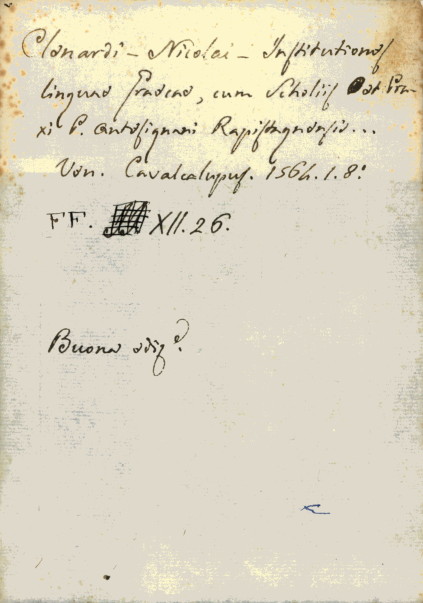 Clenardi - Nicolai - Institutiones
linguae Graecae, cum Scholiis et Pra-
xi P. Antesignani Rapistagnensis...
Ven. Cavalcalupus. 1564. 1. 8º
FF. XII. 26.
Buona ediz.e